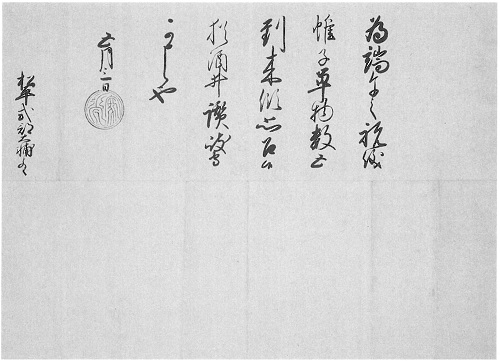 為端午之祝儀
帷子單物数五
到来思召候
猶酒井讃岐守
可申也
五月三日
松平式部大輔とのへ